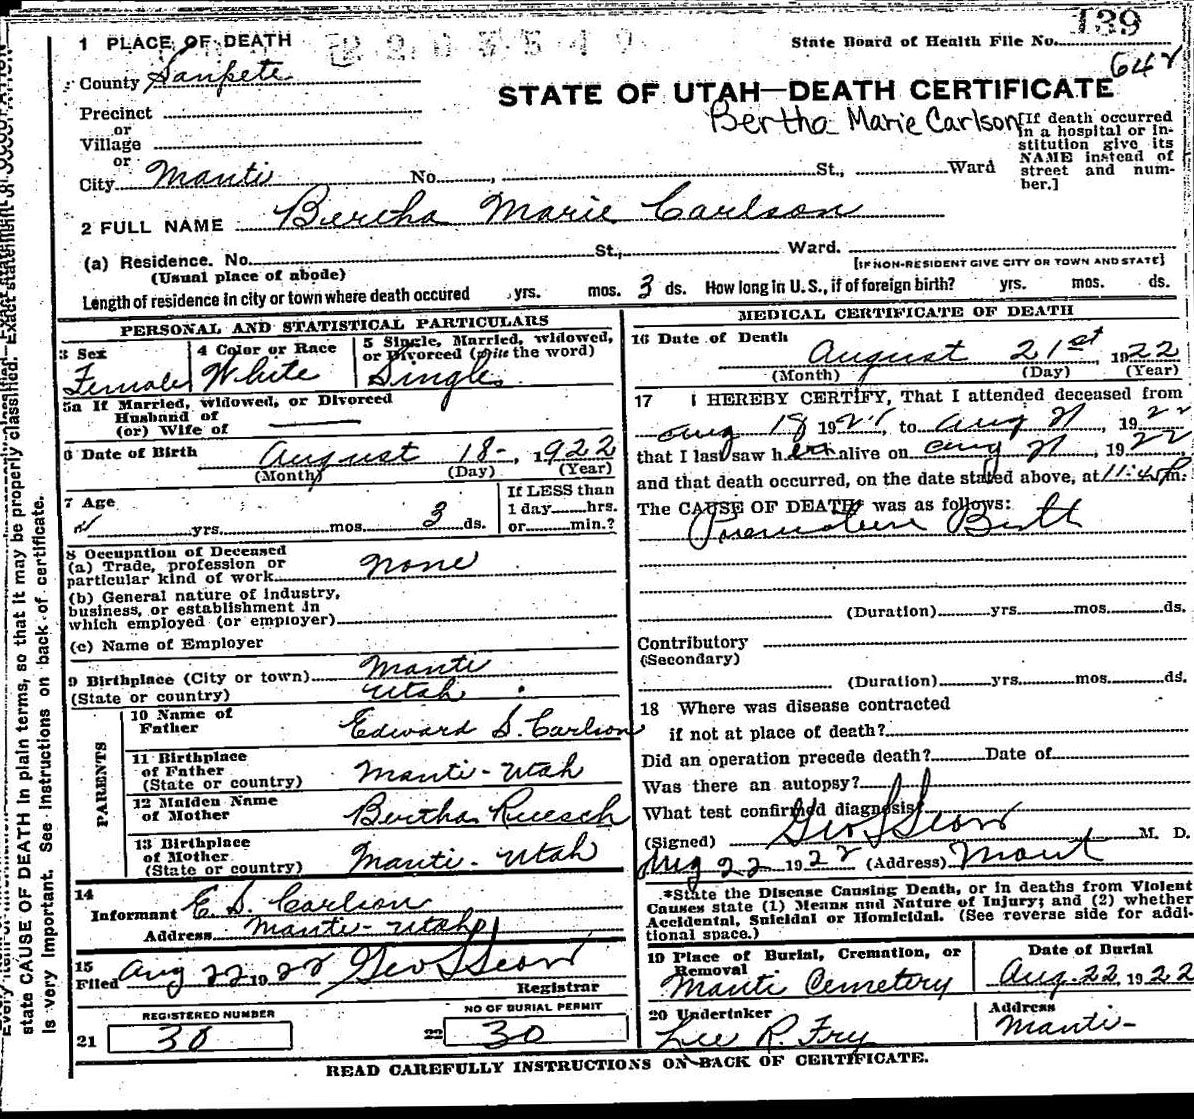 139
1 PLACE OF DEATH
State Board of Health File No.
County Sanpete
642
STATE OF UTAH—DEATH CERTIFICATE
Precinct
Bertha Marie Carlson
or
Village
or
City Manti No. , St., Ward
[If death occurred
in a hospital or in-
stitution give its
NAME instead of
street and num-
ber.]
2 FULL NAME Bertha Marie Carlson
(a) Residence. No. St., Ward.
(Usual place of abode)
[IF NON-RESIDENT GIVE CITY OR TOWN AND STATE]
Length of residence in city or town where death occured yrs. mos. 3 ds. How long in U. S., if of foreign birth? yrs. mos. ds.
PERSONAL AND STATISTICAL PARTICULARS
3 Sex
Female
4 Color or Race
White
5 Single, Married, Widowed,
or Divorced (write the word)
Single
5a If Married, Widowed, or Divorced
Husband of
(or) Wife of
6 Date of Birth August 18-, 1922
(Month) (Day) (Year)
7 Age
yrs. mos. 3 ds.
If LESS than
1 day hrs.
or min.?
8 Occupation of Deceased
(a) Trade, profession or
particular kind of work None
(b) General nature of industry,
business, or establishment in
which employed (or employer)
(c) Name of Employer
9 Birthplace (City or town) Manti
(State or country) Utah
PARENTS
10 Name of
Father Edward S. Carlson
11 Birthplace
of Father
(State or country) Manti - Utah
12 Maiden Name
of Mother Bertha Ruesch
13 Birthplace
of Mother
(State or country) Manti - Utah
14
Informant E. S. Carlson
Address Manti - Utah
15
Filed Aug 22 1922 Geo L Sears
Registrar
REGISTERED NUMBER
21 30
NO OF BURIAL PERMIT
22 30
MEDICAL CERTIFICATE OF DEATH
16 Date of Death
August 21st, 1922
(Month) (Day) (Year)
17 I HEREBY CERTIFY, That I attended deceased from
Aug 18 192 , to Aug 21, 1922
that I last saw her alive on Aug 21, 1922
and that death occurred, on the date stated above, at 11:45 P m.
The CAUSE OF DEATH* was as follows:
Premature Birth
(Duration) yrs. mos. ds.
Contributory
(Secondary)
(Duration) yrs. mos. ds.
18 Where was disease contracted
if not at place of death?
Did an operation precede death? Date of
Was there an autopsy?
What test confirmed diagnosis
(Signed) Geo L Sears M. D.
Aug 22 1922 (Address) Manti
*State the Disease Causing Death, or in deaths from Violent
Causes state (1) Means and Nature of Injury; and (2) whether
Accidental, Suicidal or Homicidal. (See reverse side for addi-
tional space.)
19 Place of Burial, Cremation, or
Removal
Manti Cemetery
Date of Burial
Aug. 22, 1922
20 Undertaker
Lee R. Fry
Address
Manti -
READ CAREFULLY INSTRUCTIONS ON BACK OF CERTIFICATE.
state CAUSE OF DEATH in plain terms, so that it may be properly classified. Exact statement of OCCUPATION
is very important. See instructions on back of certificate.